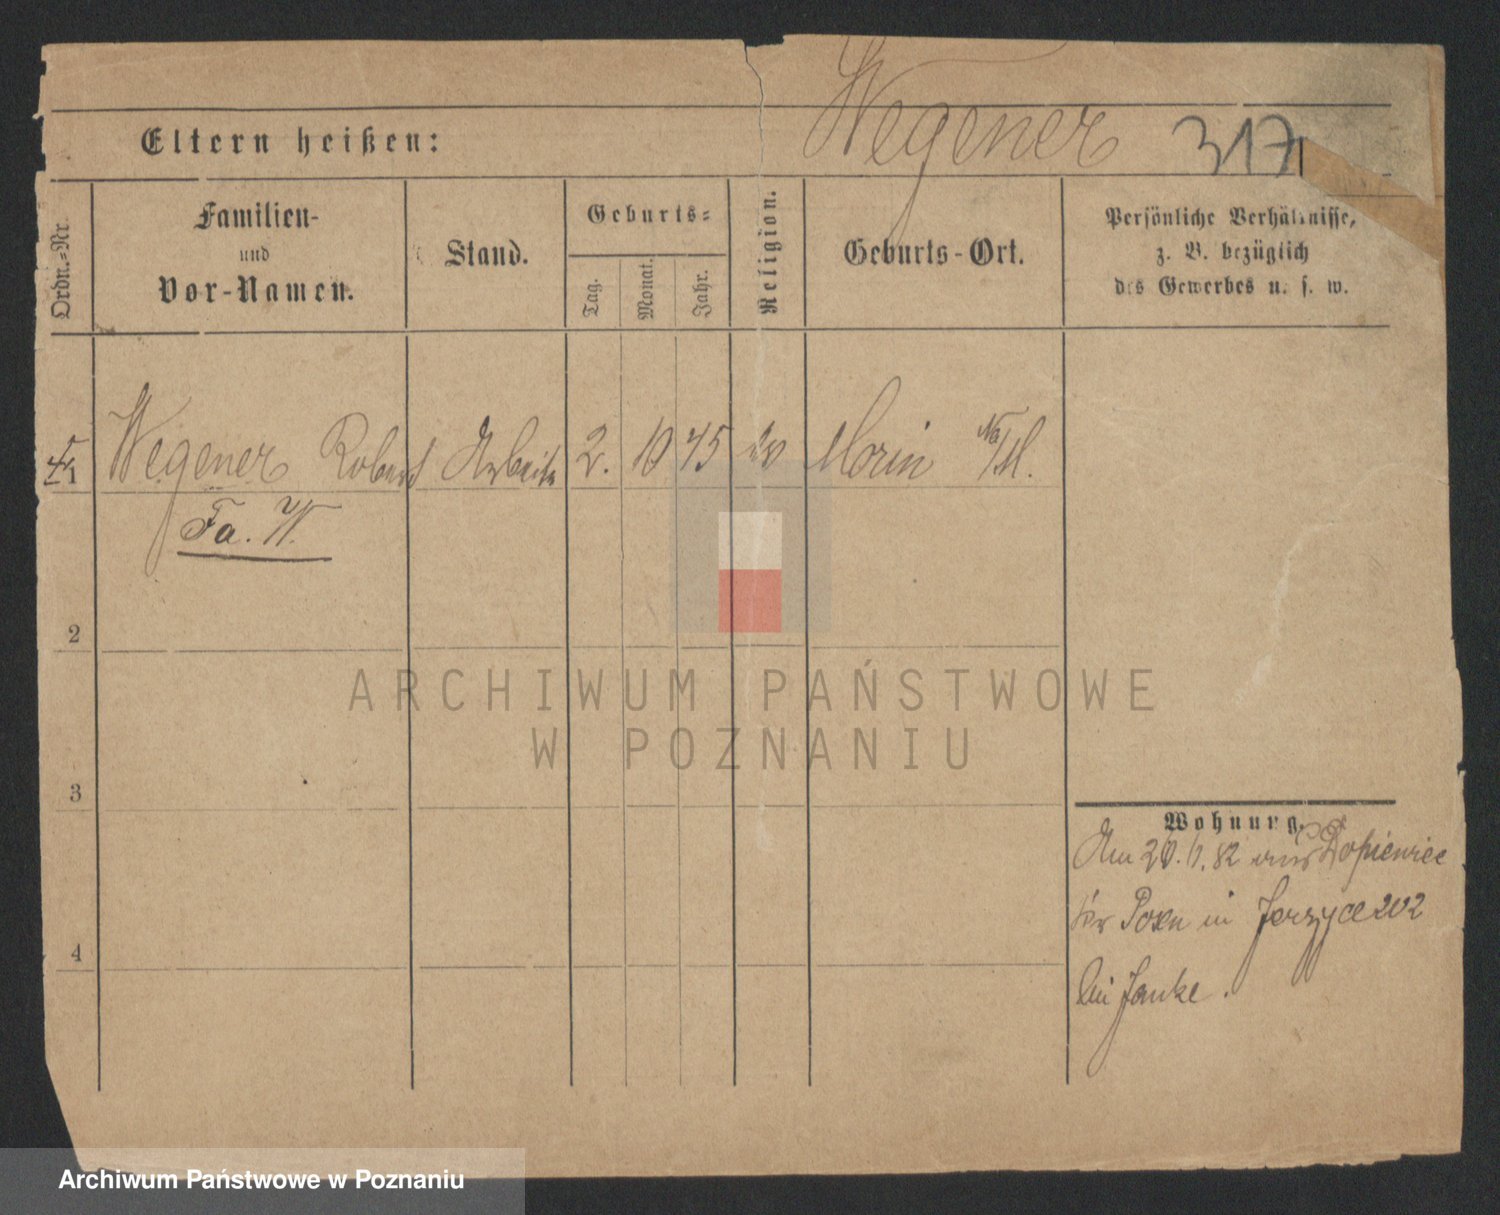 Wegener 317
Eltern heißen:
Ordn.-Nr.
Familien-
und
Vor-Namen.
Stand.
Geburts-
Tag.
Monat.
Jahr.
Religion.
Geburts-Ort.
Persönliche Verhältnisse,
z. B. bezüglich
des Gewerbes u. s. w.
Wegener Robert Arbeiter 2. 10 45 ev Morin N/M.
Fa. W.
2
3
4
Wohnung.
Am 26. 6. 82 aus Dopiewiec
Posen in Jerzyce 202
bei Janke.
ARCHIWUM PAŃSTWOWE
W POZNANIU
Archiwum Państwowe w Poznaniu